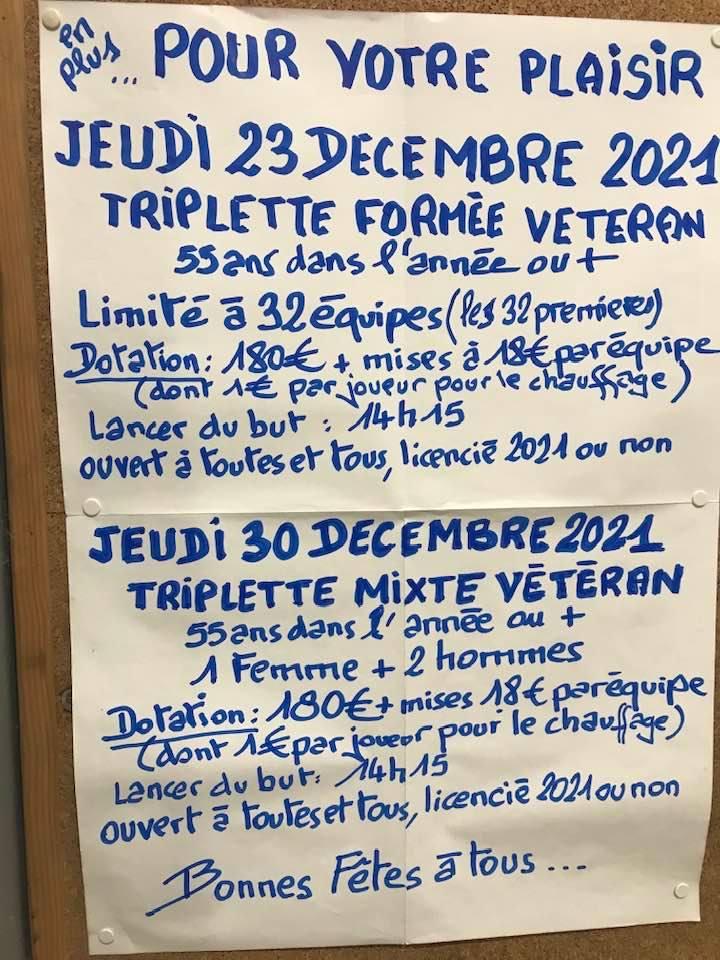 en plus... POUR VOTRE PLAISIR
JEUDI 23 DECEMBRE 2021
TRIPLETTE FORMÉE VETERAN
55 ans dans l'année ou +
Limité à 32 équipes (les 32 premieres)
Dotation : 180€ + mises à 18€ par équipe
(dont 1€ par joueur pour le chauffage)
Lancer du but : 14h15
ouvert à toutes et tous, licencié 2021 ou non
JEUDI 30 DECEMBRE 2021
TRIPLETTE MIXTE VÉTÉRAN
55 ans dans l'année ou +
1 Femme + 2 hommes
Dotation : 180€ + mises 18€ par équipe
(dont 1€ par joueur pour le chauffage)
Lancer du but : 14h15
ouvert à toutes et tous, licencié 2021 ou non
Bonnes Fêtes à tous ...